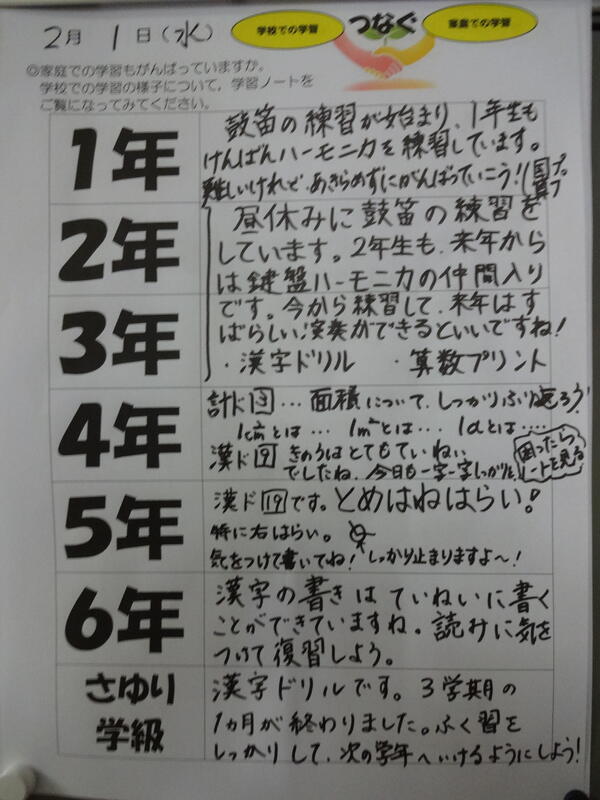 2月 1日(水)
学校での学習 つなぐ 家庭での学習
◎家庭での学習もがんばっていますか。
学校での学習の様子について,学習ノートを
ご覧になってみてください。
1年
鼓笛の練習が始まり、1年生も
けんばんハーモニカを練習しています。
難しいけれど、あきらめずにがんばっていこう!
国プ
算プ
2年
3年
昼休みに鼓笛の練習を
しています。2年生も、来年から
は鍵盤ハーモニカの仲間入り
です。今から練習して、来年はす
ばらしい演奏ができるといいですね!
・漢字ドリル ・算数プリント
4年
計ド … 面積について、しっかりふり返ろう!
1cm²とは… 1m²とは… 1aとは…
漢ド きのうはとてもていねい
でしたね、今日も一字一字しっかりと、
困ったら
ノートを見る
5年
漢ド19です。とめはねはらい!
特に右はらい。
気をつけて書いてね!しっかり止まりますよ~!
6年
漢字の書きはていねいに書く
ことができていますね。読みに気を
つけて復習しよう。
さゆり
学級
漢字ドリルです。3学期の
1カ月が終わりました。ふく習を
しっかりして、次の学年へいけるようにしよう!